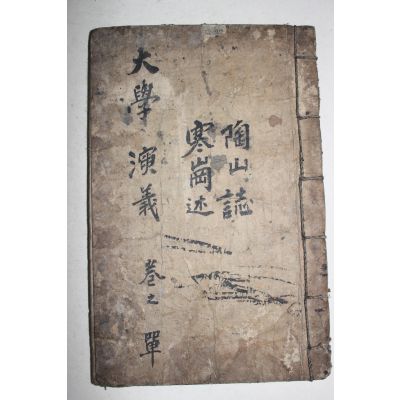 陶山誌
寒崗述
大學演義 卷之單